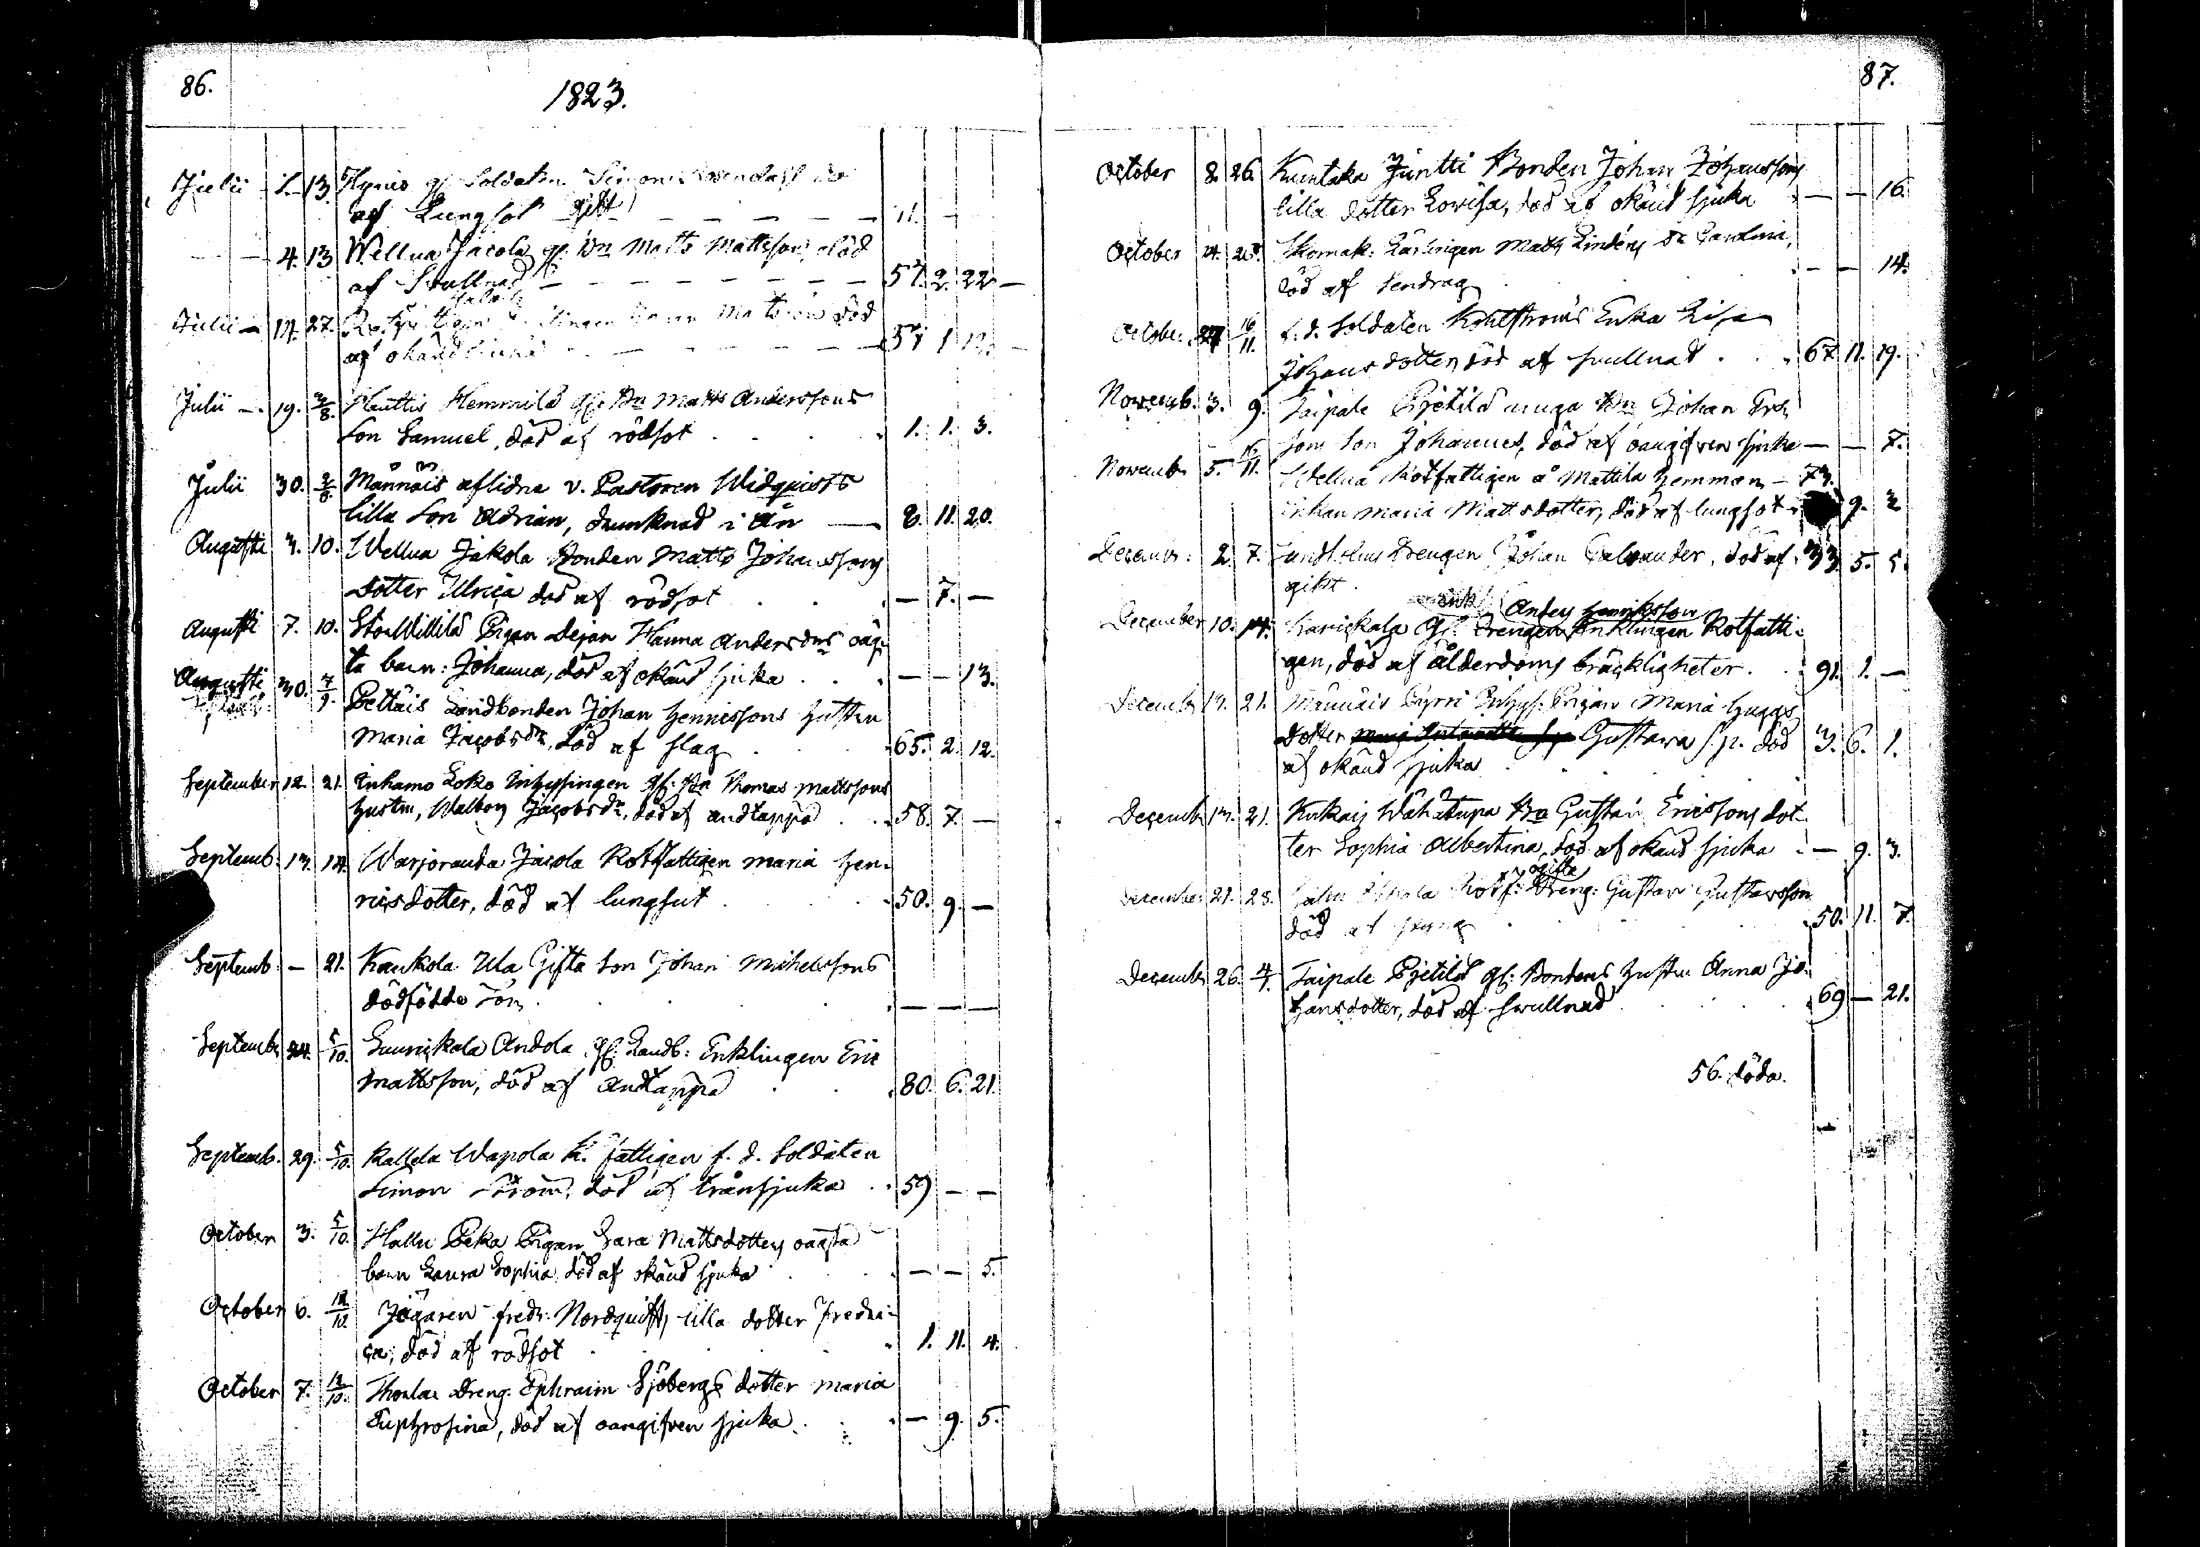 86.
1823.
Julii 1. 13. gl. Soldaten Simon
af Lungsot Gift — — — — — 71. —
— 4. 13 Wellua Jacola gl. Bn Matts Mattsson, död
af Swullnad — — — — — 57. 2. 22 —
Julii — 14. 27. död
af okänd — — — 57 1
Julii —. 19. 3/8. Hemmilä gl. Bn Matts Anderssons
Son Samuel, död af rödsot . . . 1. 1. 3.
Julii 30. 3/8. Männäis aflidne v. Pastoren Widquists
lilla Son Adrian, drunknad i ån — 8. 11. 20.
Augusti 3. 10. Wellua Jakola Bonden Matts Johanssons
dotter Ulrica död af rödsot . . — 7. —
Augusti 7. 10. StorWillilä Pigan Dejan Hanna Andersdrs oäg-
ta barn: Johanna, död af okänd sjuka . . . — — 13.
Augusti 30. 7/9. Pettäis Landbonden Johan Henricssons hustru
Maria Jacobsdr, död af slag . . 65. 2. 12.
September 12. 21. Inhysingen gl. Bn Thomas Mattssons
hustru, Walborg Jacobsdr, död af andtäppa . . 58. 7. —
Septemb. 13. 14. Warjoranda Jacola Rotfattigen Maria Hen-
ricsdotter, död af lungsut . . . 50. 9. —
Septemb. — 21. Kaukola Ula Gifta Son Johan Michelssons
dödfödde Son . . . . — — —
Septemb. 24. 5/10. Laurickala Andola gl. Landb: Enklingen Eric
Mattsson, död af Andtäppa . . . 80. 6. 21.
Septemb. 29. 5/10. Kallela Wapola R. fattigen f. d. Soldaten
Simon Ström, död af trånsjuka . . 59 — —
October 3. 5/10. Hallu Peka Pigan Sara Mattsdotters oägta
barn Laura Sophia, död af okänd sjuka . . — — 5.
October 6. 12/10. Jägaren fredr: Nordquists lilla dotter Fredri-
ca, död af rödsot . . . . 1. 11. 4.
October 7. 12/10. dreng: Ephraim Sjöbergs dotter Maria
Euphrosina, död af oangifven sjuka . . — 9. 5.
87.
October 8. 26. Kuntaka Juntti Bonden Johan Johanssons
lilla dotter Lowisa, död af okänd sjuka . — — 16.
October 14. Skomak: Matts Lindens dr Carolina,
död af sendrag . . . — — 14.
October 27 16/11. f. d. Soldaten Kohlströms Enka Lisa
Johansdotter, död af swullnad . . . 67. 11. 19.
Novemb. 3. 9. Taipale Pjetilä unga Bn Johan Erics-
sons Son Johannes, död af oangifven sjuka — — 7.
Novemb 5. 16/11. Wellua Rotfattigen å Mattila hemman — 73.
Enkan Maria Mattsdotter, död af lungsot 9. 2
Decemb: 2. 7. Drengen Johan död af 33 5. 5.
gikt.
Anders Henriksson
December 10. 14. gl. Drengen Enklingen Rotfatti-
gen, död af ålderdoms bräckligheter . . 91. 1. —
Decemb 17. 21. Männäis Inhys: Pigan Maria
dotter Gustava s. p. död 3. 6. 1.
af okänd sjuka . . . . .
Decemb 17. 21. Wähätupa Bn Gustav Ericssons dot-
ter Sophia Albertina, död af okänd sjuka . — 9. 3.
gifta
December 21. 28. Rotf: Dreng: Gustav Gustavsson
död af . . . . 50. 11. 7.
Decemb 26. 4/1. Taipale Pjetilä gl: Bondens hustru Anna Jo-
hansdotter, död af swullnad . . . . 69 — 21.
56. döda.